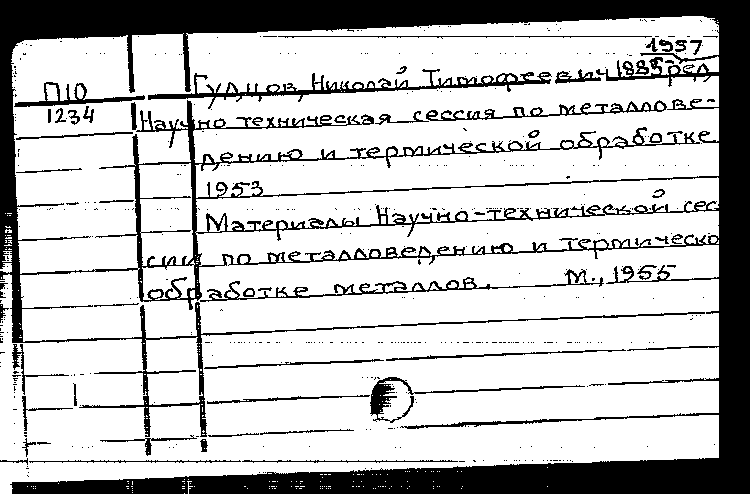 1957
П10 Гудцов, Николай Тимофеевич 1885 ред.
1234 Научно техническая сессия по металлове-
дению и термической обработке
1953
Материалы Научно-технической сес
сии по металловедению и термическо
обработке металлов. М., 1955